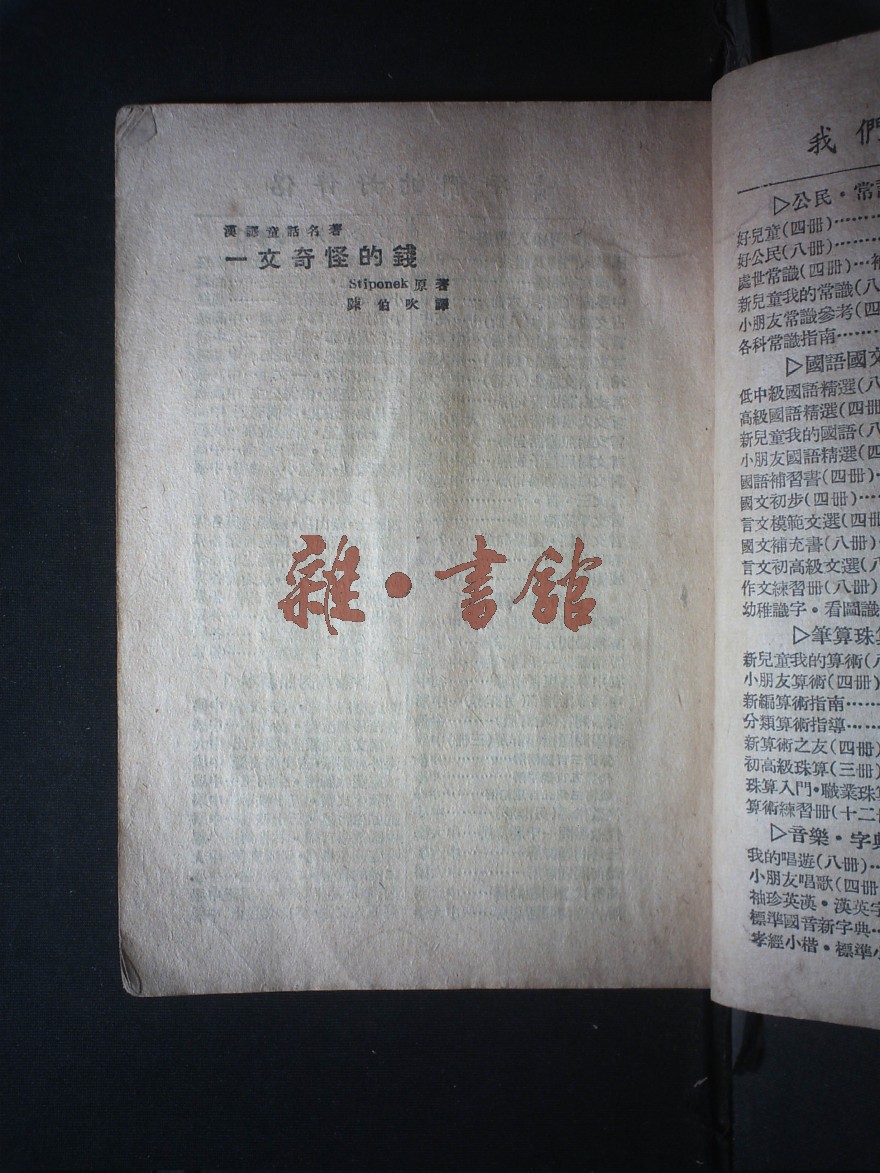 漢譯童話名著
一文奇怪的錢
Stiponek 原著
陳伯吹譯
雜·書館
我們
▷公民·常識
好兒童(四冊)………
好公民(八冊)………
處世常識(四冊)…
新兒童我的常識(八
小朋友常識參考(四
各科常識指南………
▷國語國文
低中級國語精選(八
高級國語精選(四冊
新兒童我的國語(八
小朋友國語精選(四
國語補習書(四冊)…
國文初步(四冊)……
言文模範文選(四冊
國文補充書(八冊)·
言文初高級文選(八
作文練習冊(八冊)
幼稚識字·看圖識
▷筆算珠算
新兒童我的算術(八
小朋友算術(四冊)
新編算術指南………
分類算術指導………
新算術之友(四冊)
初高級珠算(三冊)
珠算入門·職業珠算
算術練習冊(十二
▷音樂·字典
我的唱遊(八冊)…
小朋友唱歌(四冊
袖珍英漢·漢英字
標準國音新字典…
孝經小楷·標準小